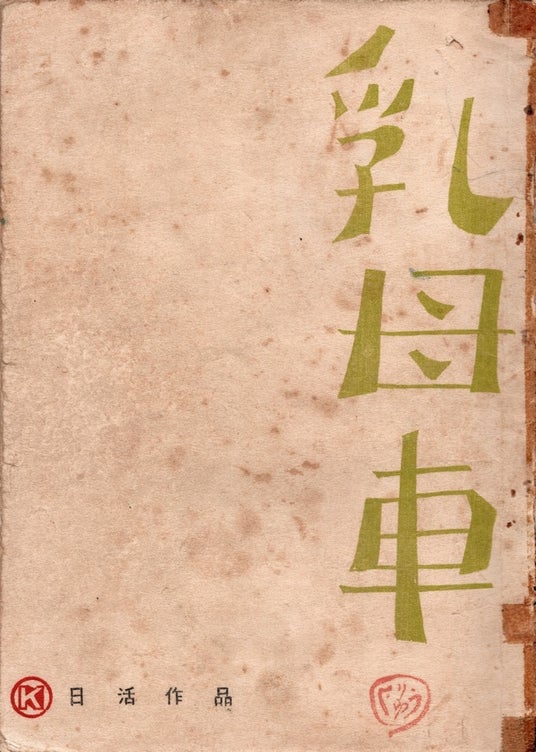 乳母車
K 日活作品